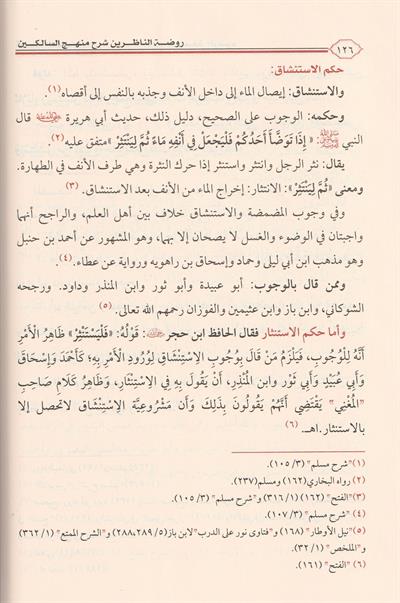 ١٢٦
روضة الناظرين شرح منهج السالكين
حكم الاستنشاق:
والاستنشاق: إيصال الماء إلى داخل الأنف وجذبه بالنفس إلى أقصاه(١).
وحكمه: الوجوب على الصحيح، دليل ذلك، حديث أبي هريرة رضي الله عنه قال
النبي ﷺ: «إِذَا تَوَضَّأَ أَحَدُكُمْ فَلْيَجْعَلْ فِي أَنْفِهِ مَاءً ثُمَّ لِيَنْتَثِرْ» متفق عليه(٢).
يقال: نثر الرجل وانتثر واستنثر إذا حرك النثرة وهي طرف الأنف في الطهارة.
ومعنى «ثُمَّ لِيَنْتَثِرْ»: الانتثار: إخراج الماء من الأنف بعد الاستنشاق. (٣)
وفي وجوب المضمضة والاستنشاق خلاف بين أهل العلم، والراجح أنهما
واجبتان في الوضوء والغسل لا يصحان إلا بهما، وهو المشهور عن أحمد بن حنبل
وهو مذهب ابن أبي ليلى وحماد وإسحاق بن راهويه ورواية عن عطاء. (٤)
وممن قال بالوجوب: أبو عبيدة وأبو ثور وابن المنذر وداود. ورجحه
الشوكاني، وابن باز وابن عثيمين والفوزان رحمهم الله تعالى. (٥)
وأما حكم الاستنثار فقال الحافظ ابن حجر رحمه الله: قَوْلُهُ: «فَلْيَسْتَنْثِرْ» ظَاهِرُ الْأَمْرِ
أَنَّهُ لِلْوُجُوبِ، فَيَلْزَمُ مَنْ قَالَ بِوُجُوبِ الِاسْتِنْشَاقِ لِوُرُودِ الْأَمْرِ بِهِ؛ كَأَحْمَدَ وَإِسْحَاقَ
وَأَبِي عُبَيْدٍ وَأَبِي ثَوْرٍ وَابْنِ الْمُنْذِرِ، أَنْ يَقُولَ بِهِ فِي الِاسْتِنْثَارِ، وَظَاهِرُ كَلَامِ صَاحِبِ
"الْمُغْنِي" يَقْتَضِي أَنَّهُمْ يَقُولُونَ بِذَلِكَ وَأَنَّ مَشْرُوعِيَّةَ الِاسْتِنْشَاقِ لَا تَحْصُلُ إِلَّا
بِالاستنثار.اهـ. (٦)
(١)"شرح مسلم" (٣/ ١٠٥).
(٢) رواه البخاري(١٦٢) ومسلم(٢٣٧).
(٣)"الفتح" (١٦٢) (١/ ٣١٦) و"شرح مسلم" (٣/ ١٠٥).
(٤) "شرح مسلم" (٣/ ١٠٧).
(٥)"نيل الأوطار" (١٦٨) و"فتاوى نور على الدرب"لابن باز(٥/ ٢٨٨،٢٨٩) و"الشرح الممتع" (١/ ٣٦٢)
و"الملخص" (١/ ٣٢).
(٦) "الفتح" (١٦١).